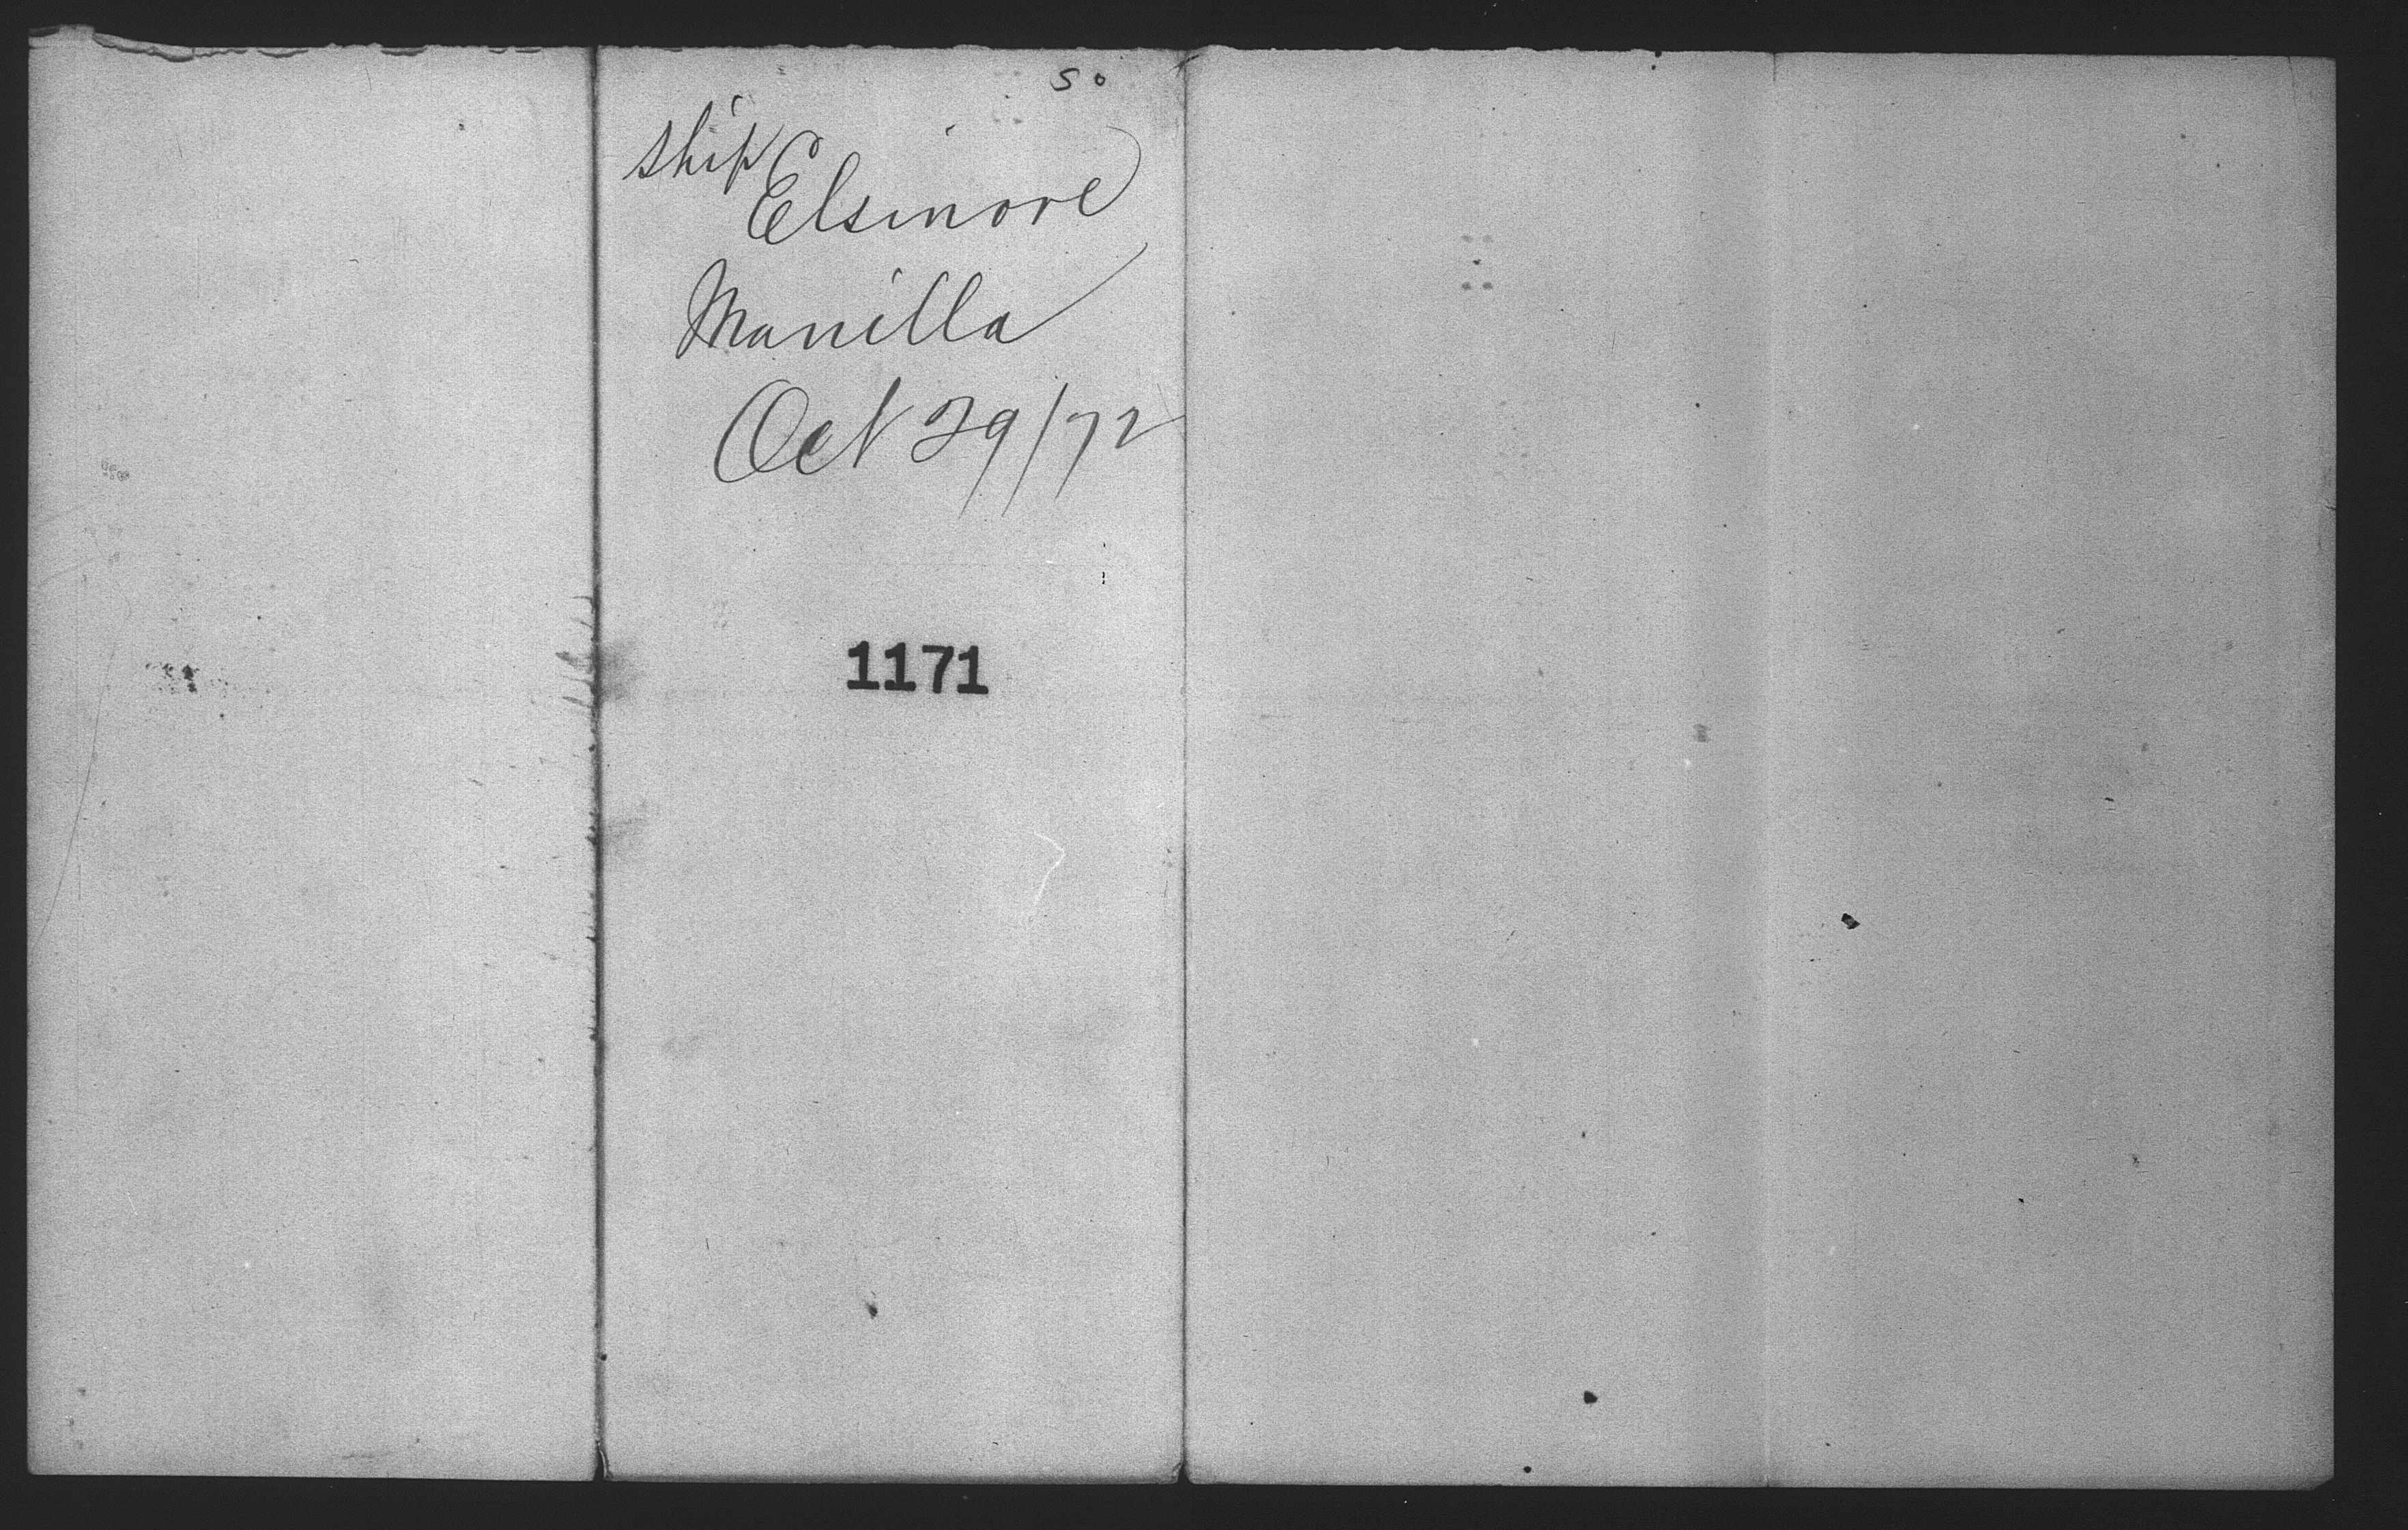 50
Ship
Elsinore
Manilla
Oct 29/72
1171